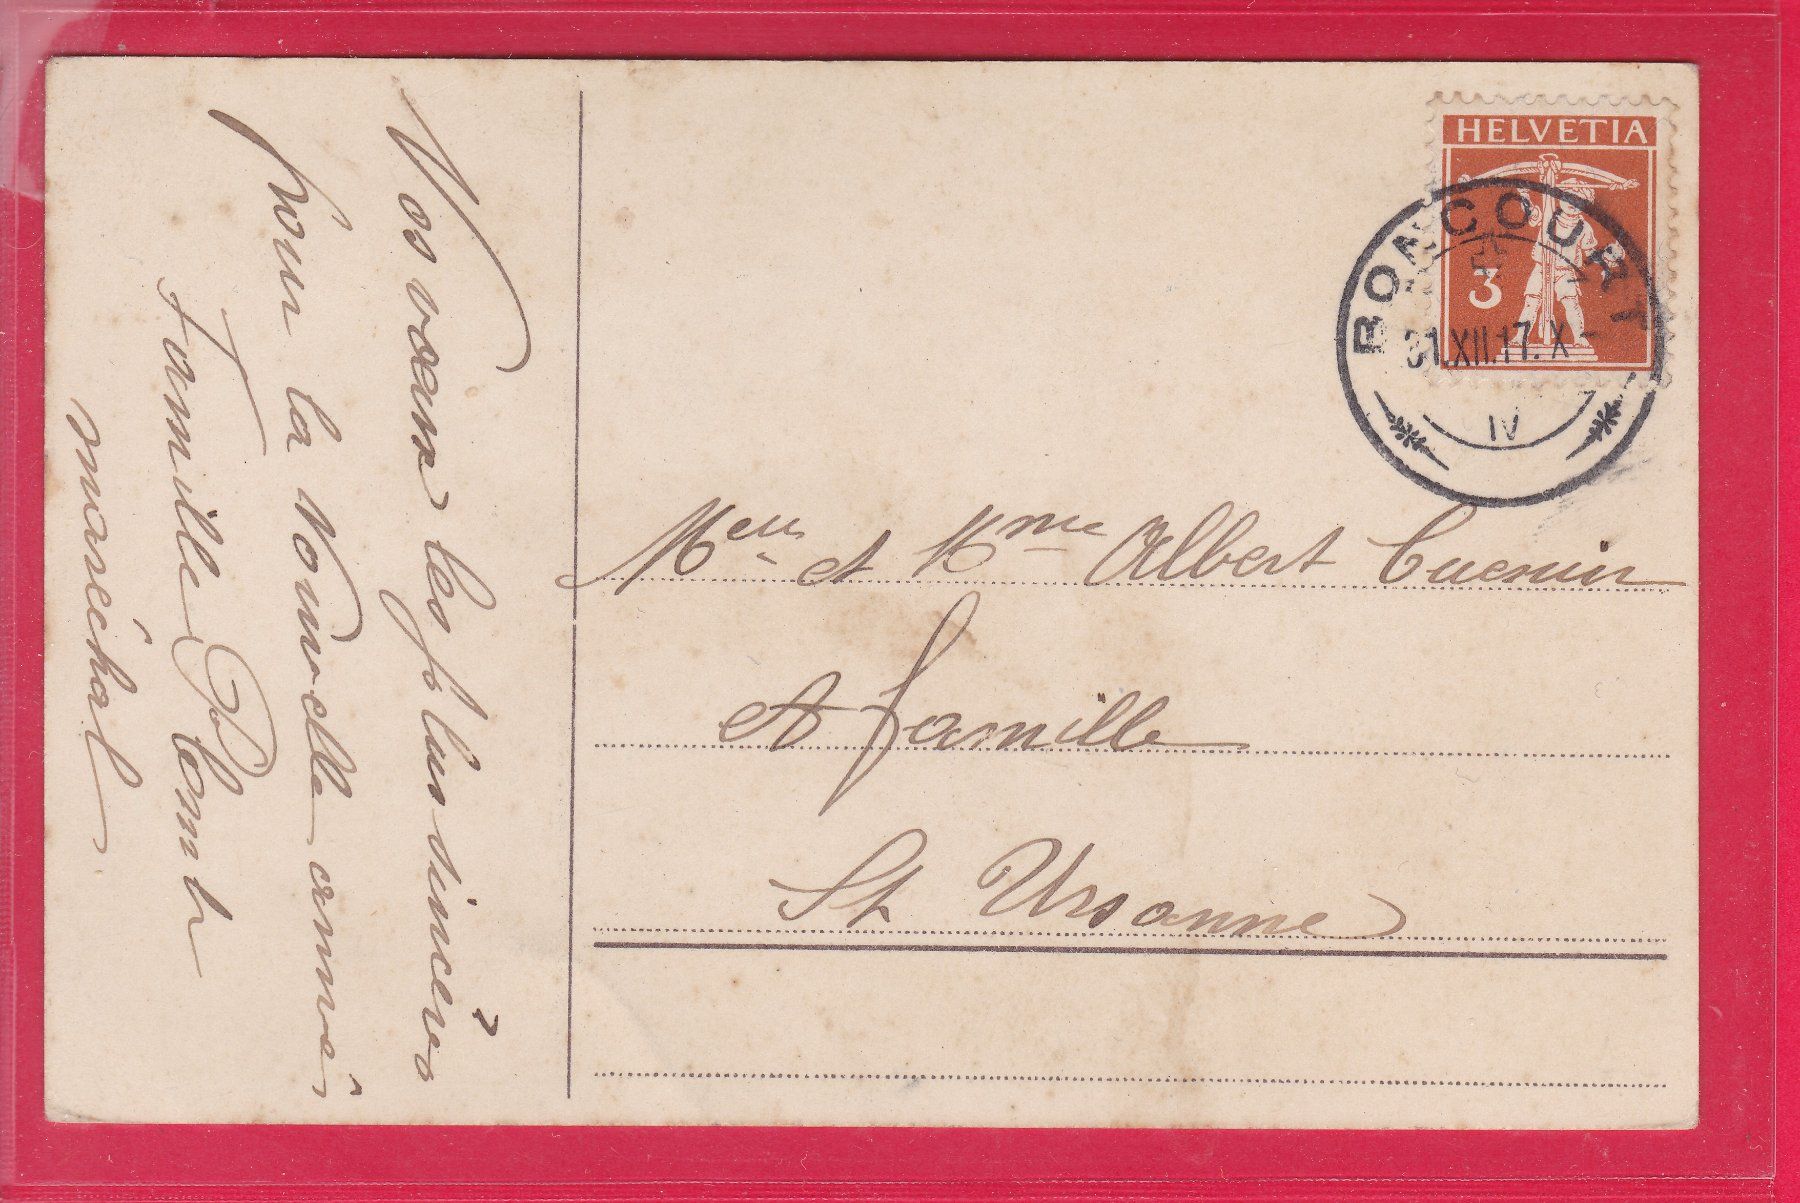 Nos vœux les plus sincères
pour la Nouvelle année
Famille P. Comb
maréchal
HELVETIA
3
BONCOURT
31.XII.17.X-
IV
Meur et Mme Albert Cuenin
et famille
St Ursanne